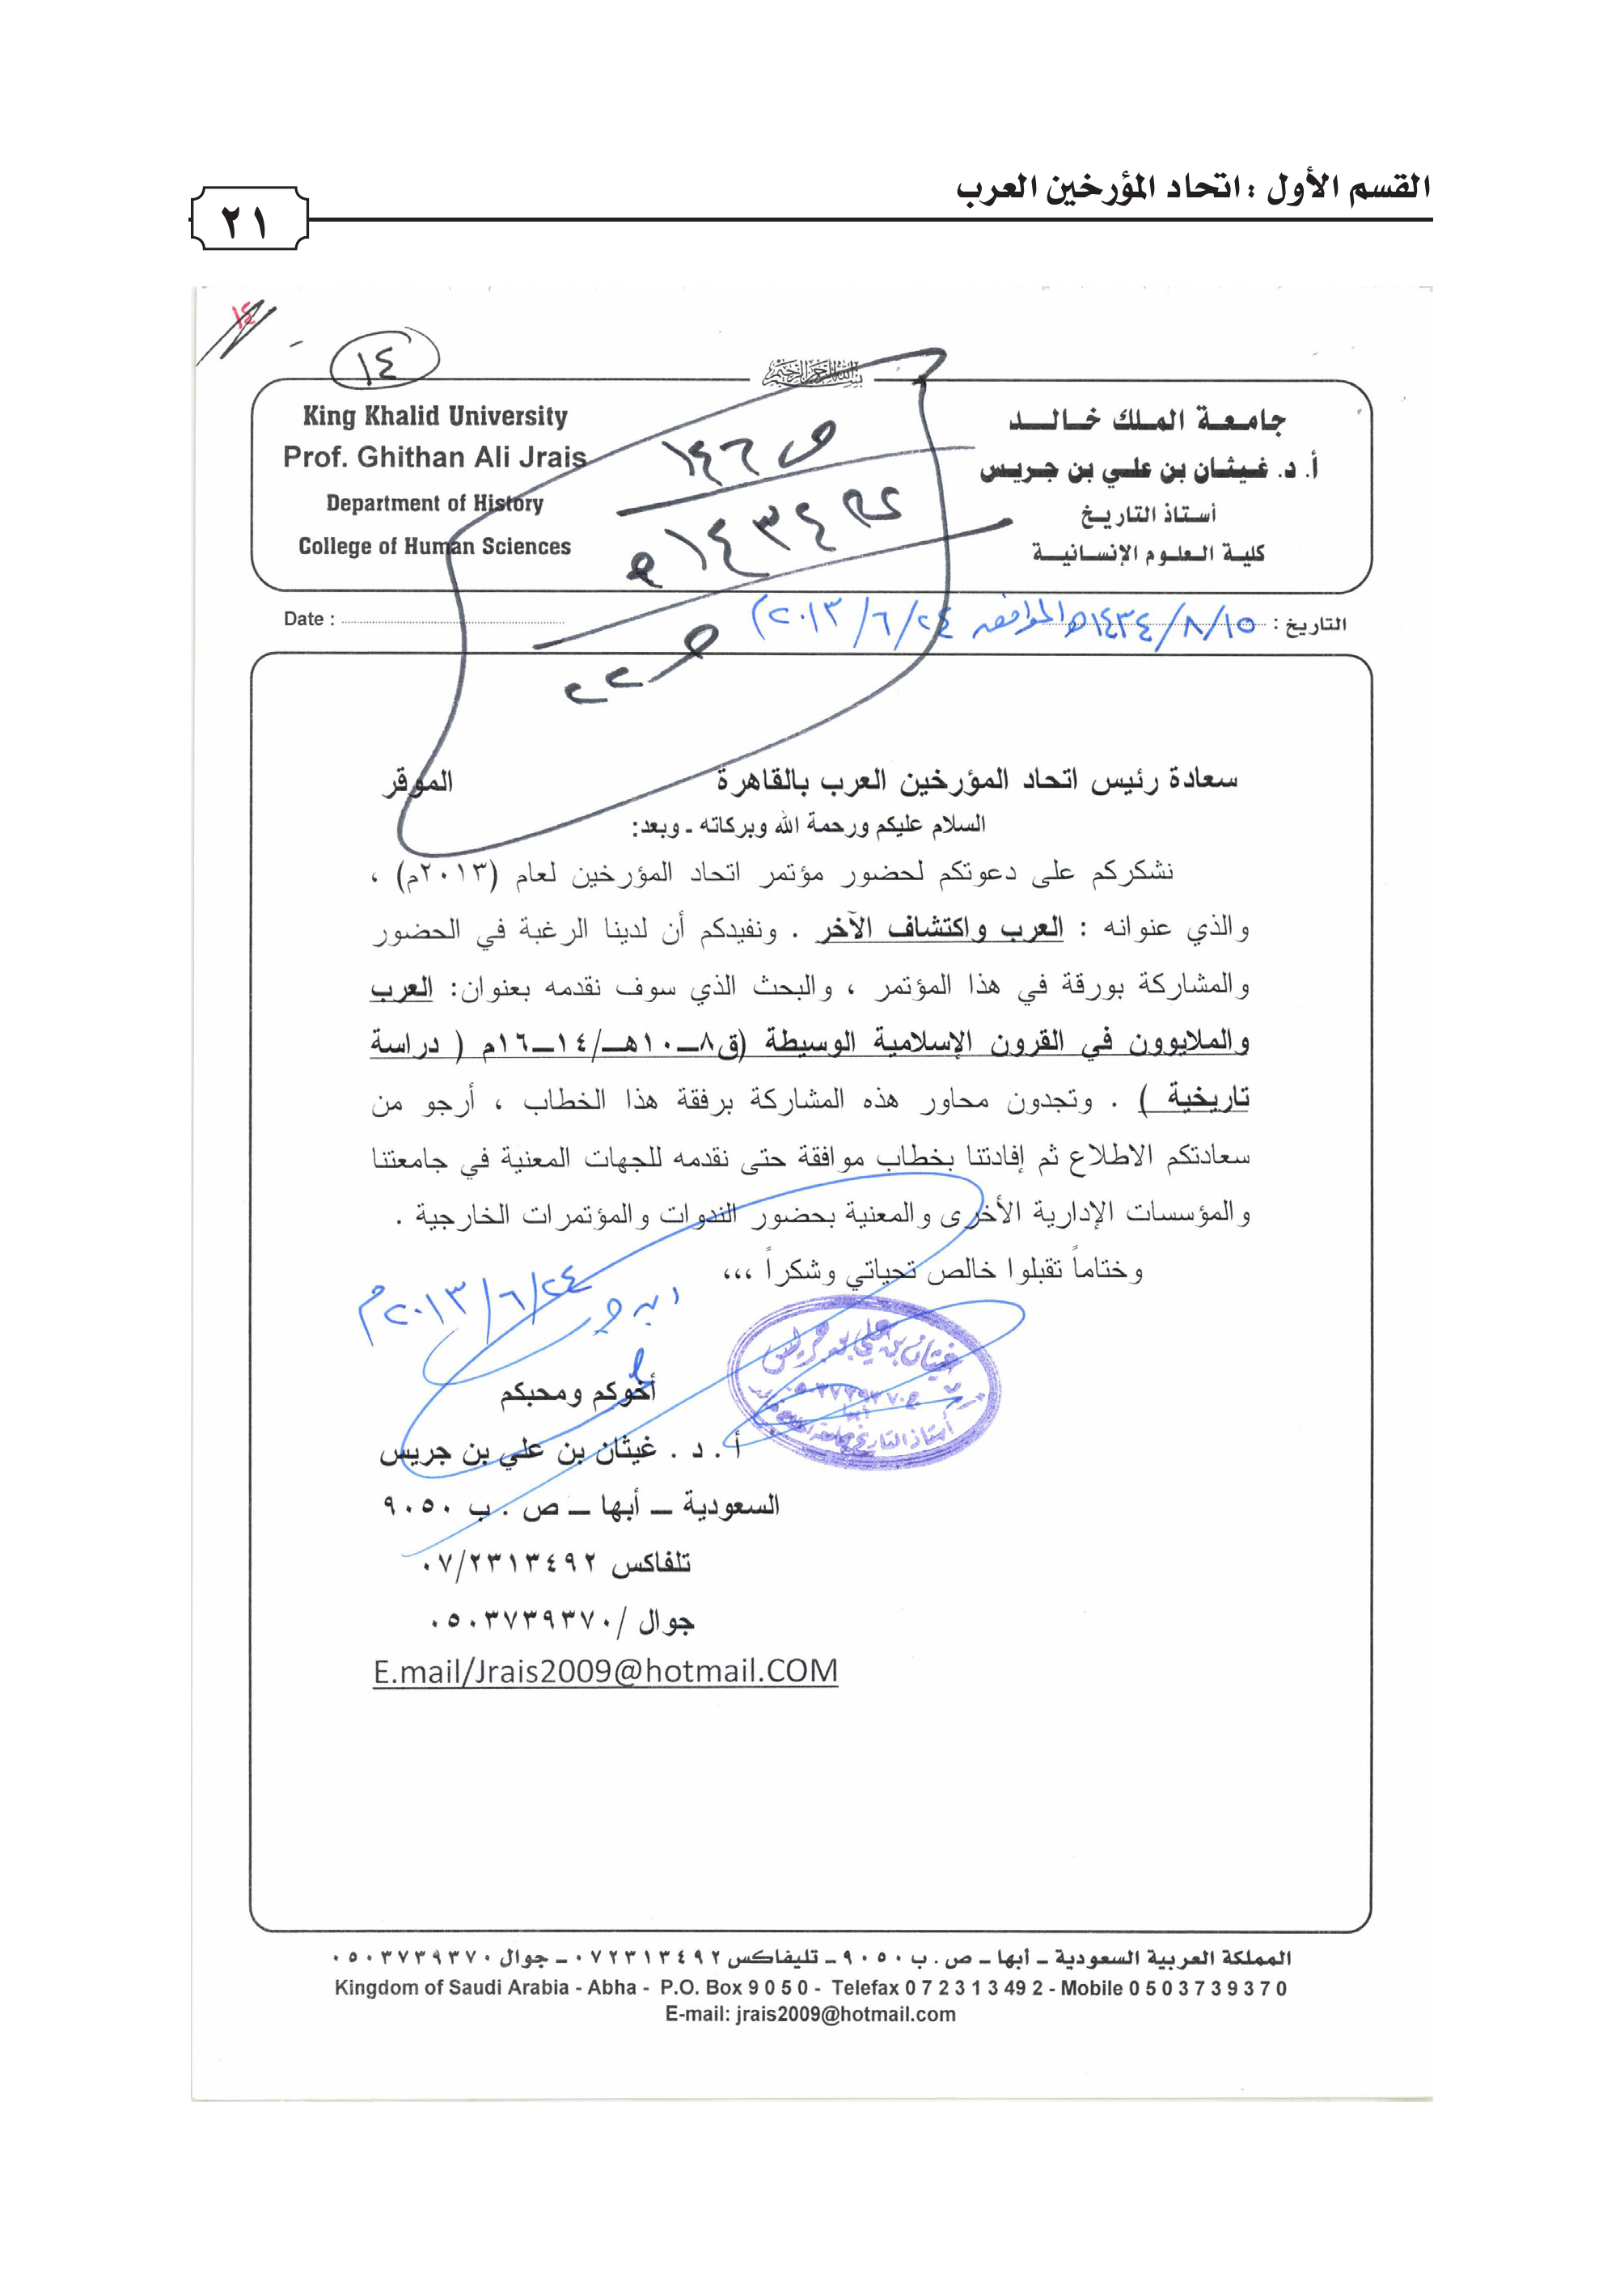 القسم الأول : اتحاد المؤرخين العرب
٢١
١٤
١٤
بسم الله الرحمن الرحيم
جامعة الملك خالد
أ. د. غيثان بن علي بن جريس
أستاذ التاريخ
كلية العلوم الإنسانية
King Khalid University
Prof. Ghithan Ali Jrais
Department of History
College of Human Sciences
ص ١٤٦
١٤٣٤هـ
ص ٢٢
التاريخ : ١٥/٨/١٤٣٤هـ الموافق ٢٤/٦/٢٠١٣)
Date :
سعادة رئيس اتحاد المؤرخين العرب بالقاهرة الموقر
السلام عليكم ورحمة الله وبركاته ـ وبعد:
نشكركم على دعوتكم لحضور مؤتمر اتحاد المؤرخين لعام (٢٠١٣م) ،
والذي عنوانه : العرب واكتشاف الآخر . ونفيدكم أن لدينا الرغبة في الحضور
والمشاركة بورقة في هذا المؤتمر ، والبحث الذي سوف نقدمه بعنوان: العرب
والملايوون في القرون الإسلامية الوسيطة (ق٨ــ١٠هــ/١٤ــ١٦م ( دراسة
تاريخية ) . وتجدون محاور هذه المشاركة برفقة هذا الخطاب ، أرجو من
سعادتكم الاطلاع ثم إفادتنا بخطاب موافقة حتى نقدمه للجهات المعنية في جامعتنا
والمؤسسات الإدارية الأخرى والمعنية بحضور الندوات والمؤتمرات الخارجية .
وختاماً تقبلوا خالص تحياتي وشكراً ،،،
٢٤/٦/٢٠١٣م
غيثان بن علي بن جريس
أبها
أستاذ التاريخ بجامعة الملك
أخوكم ومحبكم
أ . د . غيثان بن علي بن جريس
السعودية ــ أبها ــ ص . ب ٩٠٥٠
تلفاكس ٠٧/٢٣١٣٤٩٢
جوال /٠٥٠٣٧٣٩٣٧٠
E.mail/Jrais2009@hotmail.COM
المملكة العربية السعودية ـ أبها ـ ص . ب ٩٠٥٠ ـ تليفاكس ٠٧٢٣١٣٤٩٢ ـ جوال ٠٥٠٣٧٣٩٣٧٠
Kingdom of Saudi Arabia - Abha - P.O. Box 9 0 5 0 - Telefax 0 7 2 3 1 3 49 2 - Mobile 0 5 0 3 7 3 9 3 7 0
E-mail: jrais2009@hotmail.com